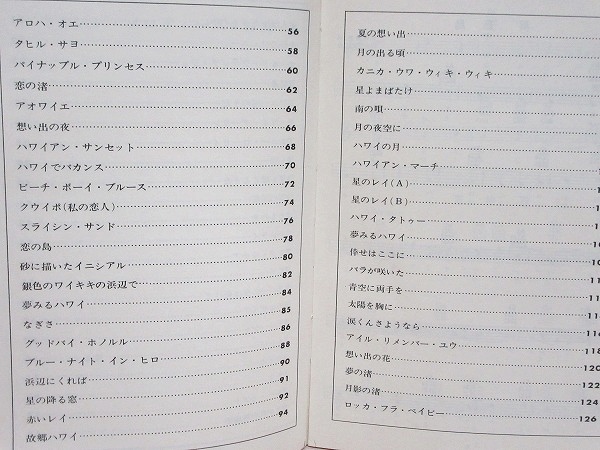 アロハ・オエ 56
タヒル・サヨ 58
パイナップル・プリンセス 60
恋の渚 62
アオワイエ 64
想い出の夜 66
ハワイアン・サンセット 68
ハワイでバカンス 70
ビーチ・ボーイ・ブルース 72
クウイポ(私の恋人) 74
スライシン・サンド 76
恋の島 78
砂に描いたイニシアル 80
銀色のワイキキの浜辺で 82
夢みるハワイ 84
なぎさ 85
グッドバイ・ホノルル 86
ブルー・ナイト・イン・ヒロ 88
浜辺にくれば 90
星の降る窓 91
赤いレイ 92
故郷ハワイ 94
夏の想い出
月の出る頃
カニカ・ウワ・ウィキ・ウィキ
星よまばたけ
南の唄
月の夜空に
ハワイの月
ハワイアン・マーチ
星のレイ(A)
星のレイ(B)
ハワイ・タトゥー
夢みるハワイ
倖せはここに
バラが咲いた
青空に両手を
太陽を胸に
涙くんさようなら 116
アイル・リメンバー・ユウ 118
想い出の花 120
夢の渚 122
月影の渚 124
ロッカ・フラ・ベイビー 126